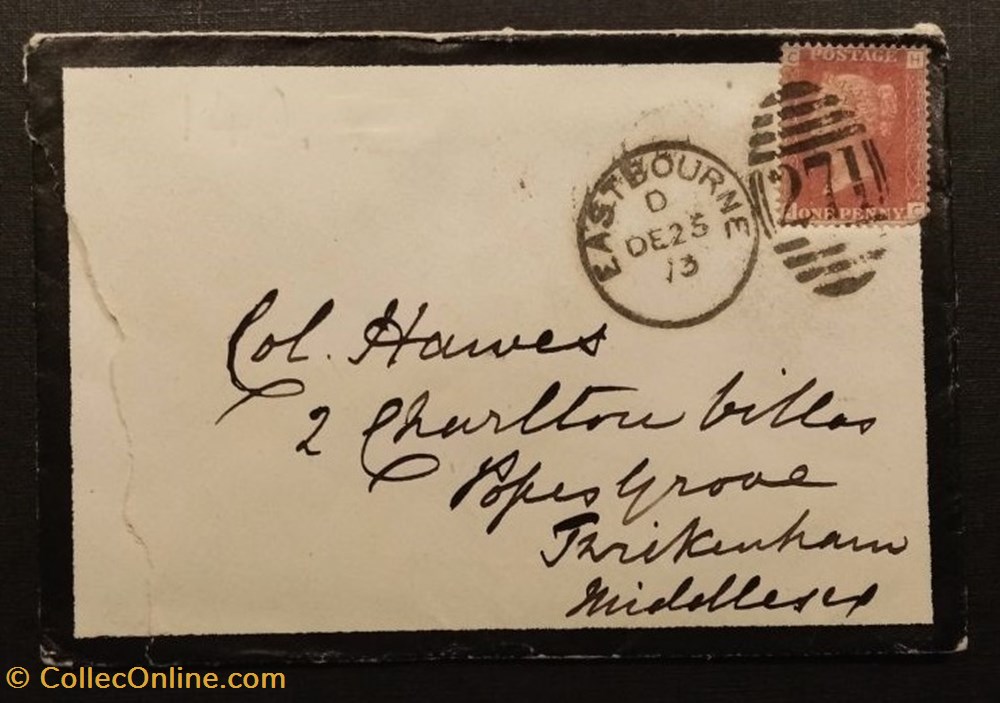 C POSTAGE H
271
H ONE PENNY C
EASTBOURNE
D
DE 25
73
Col. Hawes
2 Charlton Villas
Popes Grove
Twickenham
Middlesex
© CollecOnline.com